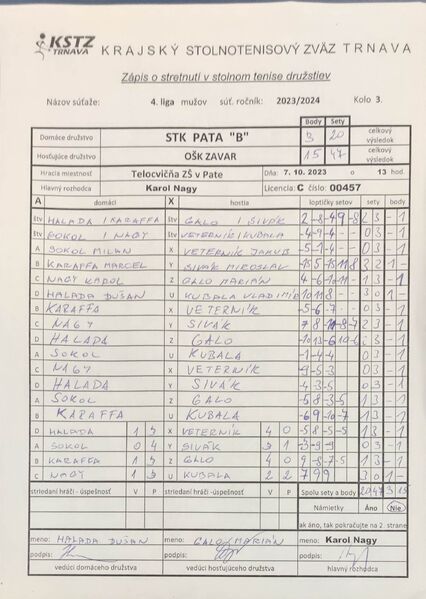 KSTZ
TRNAVA
KRAJSKÝ STOLNOTENISOVÝ ZVÄZ TRNAVA
Zápis o stretnutí v stolnom tenise družstiev
Názov súťaže: 4. liga mužov súť. ročník: 2023/2024 Kolo 3.
Body Sety
Domáce družstvo STK PATA "B" 3 20 celkový výsledok
Hosťujúce družstvo OŠK ZAVAR 15 47 celkový výsledok
Hracia miestnosť Telocvičňa ZŠ v Pate Dňa: 7. 10. 2023 o 13 hod.
Hlavný rozhodca Karol Nagy Licencia: C číslo: 00457
A domáci X hostia loptičky setov sety body
štv HALADA / KARAFFA štv GALO / SIVÁK
štv SOKOL / NAGY štv VETERNÍK / KUBALA -4-9-4 03 -1
A SOKOL MILAN X VETERNÍK JAKUB -5-1-4 03 -1
B KARAFFA MARCEL Y SIVÁK MIROSLAV
C NAGY KAROL Z GALO MARIÁN 13 -1
D HALADA DUŠAN U KUBALA VLADIMÍR
B KARAFFA X VETERNÍK -5-6-7 03 -1
A NAGY Y SIVÁK
D HALADA Z GALO
A SOKOL U KUBALA -1-4-4 03 -1
C NAGY X VETERNÍK -9-5-3 03 -1
D HALADA Y SIVÁK -4-3-5 03 -1
A SOKOL Z GALO 13 -1
B KARAFFA U KUBALA -69-10-7 13 -1
D HALADA 1 3 X VETERNÍK 4 0 -58-5-5 13 -1
A SOKOL 0 4 Y SIVÁK 3 1 -3-9-9 03 -1
B KARAFFA 1 3 Z GALO 4 0 9-8-7-5 13 -1
C NAGY 1 3 U KUBALA 2 2 799 30 1-
striedaní hráči - úspešnosť V P striedaní hráči - úspešnosť V P Spolu sety a body 20 47 3 15
Námietky Áno Nie
ak áno, tak pokračujte na 2. strane
meno: HALADA DUŠAN meno: GALO MARIÁN meno: Karol Nagy
podpis: podpis: podpis:
vedúci domáceho družstva vedúci hosťujúceho družstva hlavný rozhodca